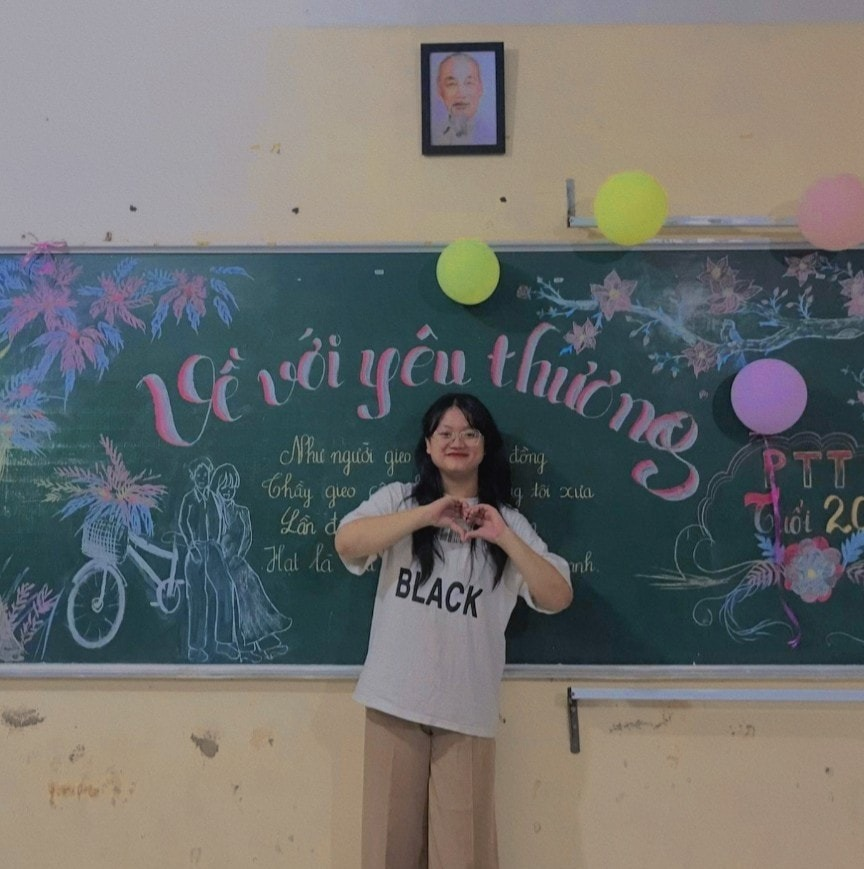 Về với yêu thương
Như người gieo đồng
Thầy gieo tôi xưa
Lần
Hạt
PTT
Tuổi 20
BLACK